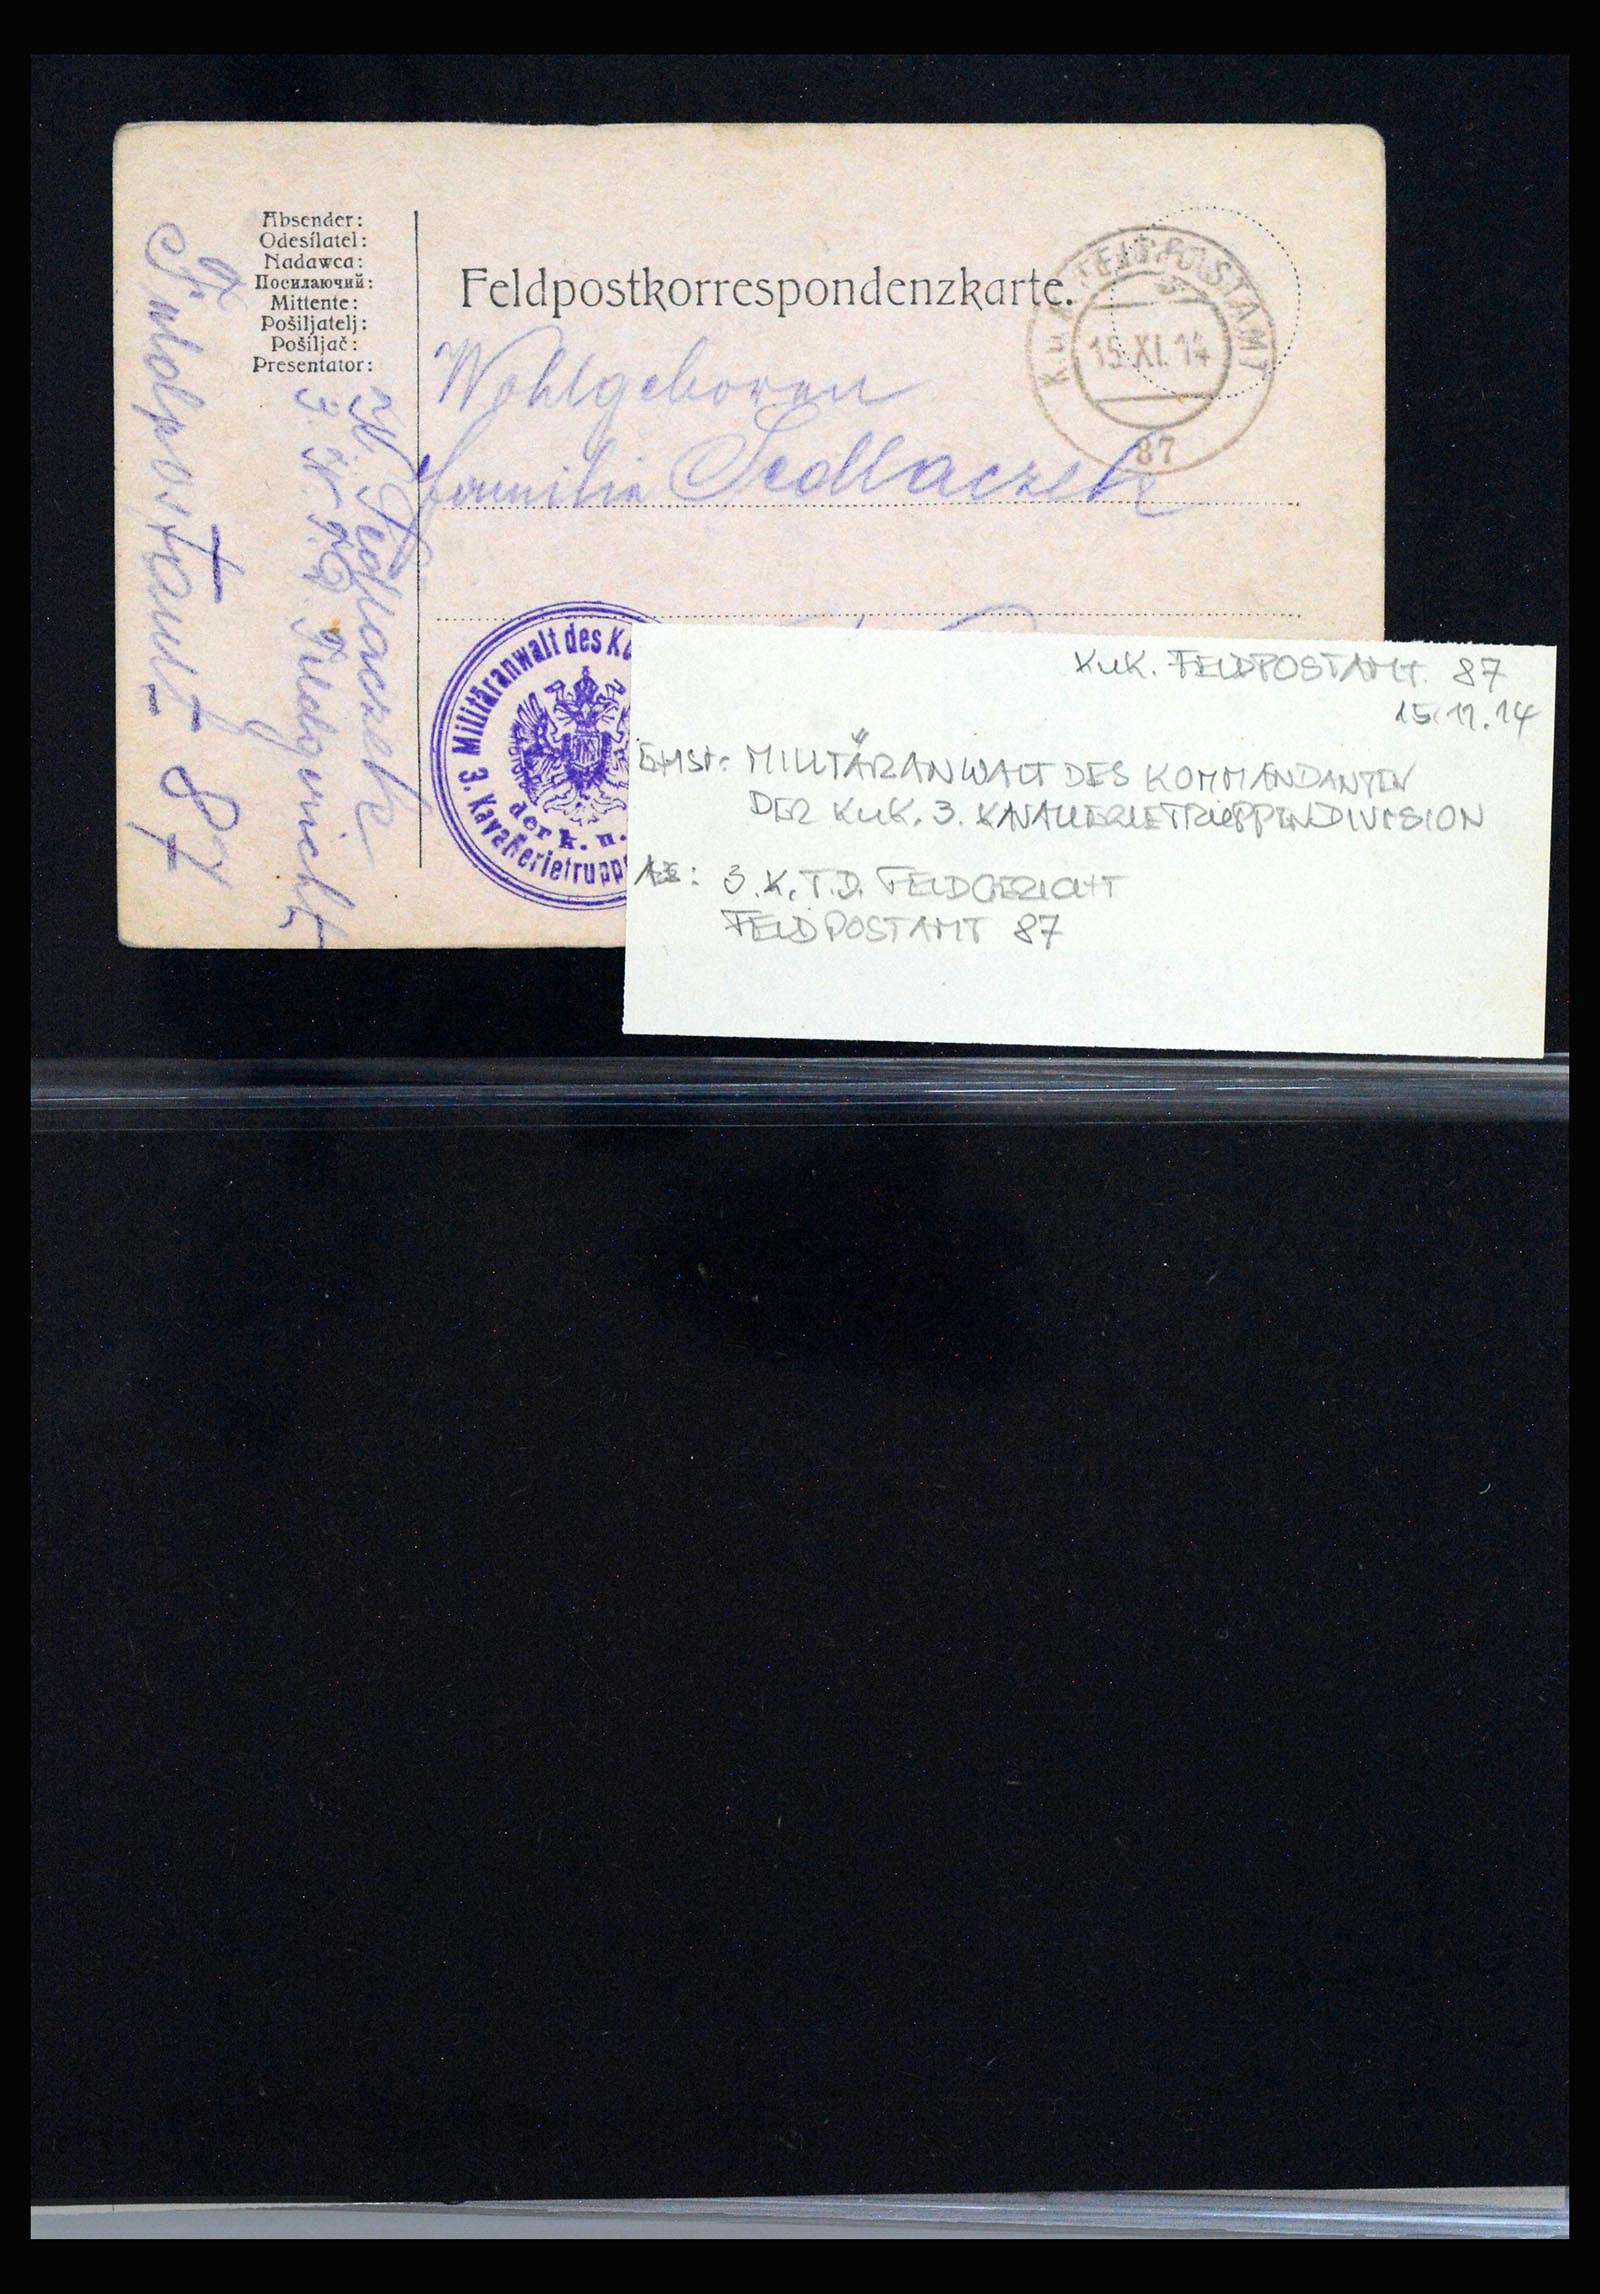 Absender:
Odesílatel:
Nadawca:
Посилаючий:
Mittente:
Pošiljatelj:
Pošiljač:
Presentator:
Feldpostkorrespondenzkarte.
K.u.K. FELDPOSTAMT
15.XI.14
87
Wohlgeboren
Familie Sedlaczek
Sedlaczek
3. K. T. D. Feldgericht
Feldpostamt 87
Militäranwalt des K
der k. u.
3. Kavallerietrupp
KuK. FELDPOSTAMT 87
15.11.14
MILITÄRANWALT DES KOMMANDANTEN
DER KuK. 3. KAVALLERIETRUPPENDIVISION
3. K. T. D. FELDGERICHT
FELDPOSTAMT 87